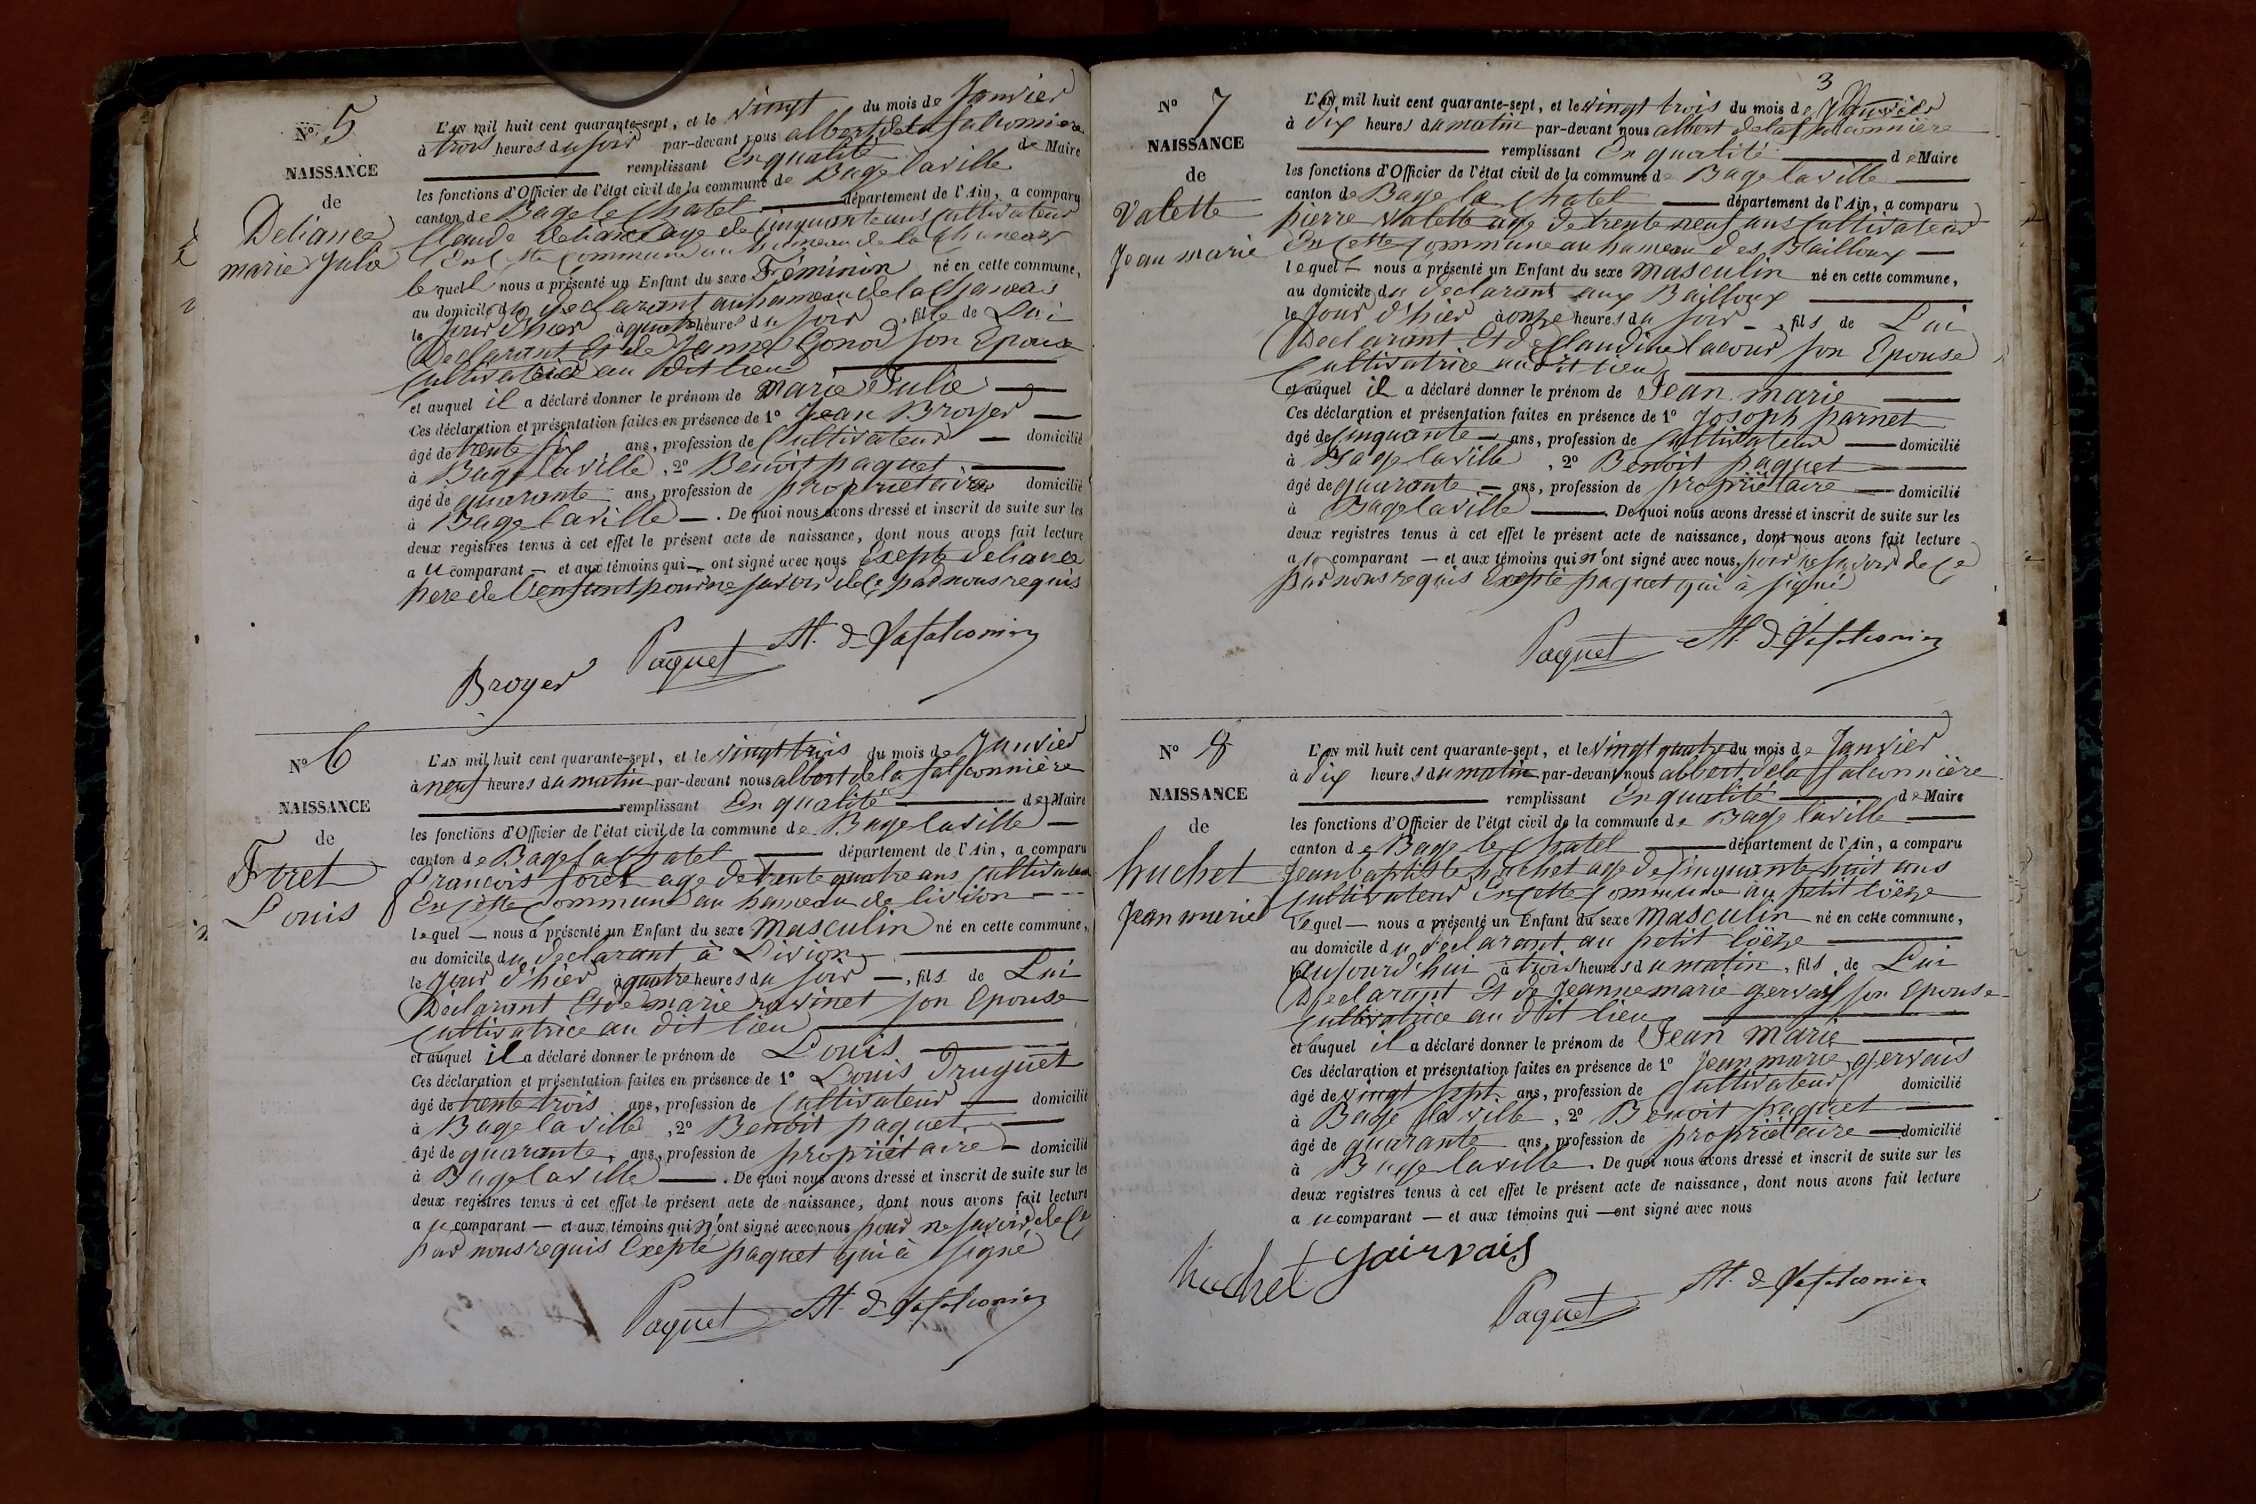 N° 5
NAISSANCE
de
Deliance
marie Julie
L'AN mil huit cent quarante-sept, et le vingt du mois de Janvier
à trois heures du soir par-devant nous albert de la falconniere
remplissant En qualité de Maire
les fonctions d'Officier de l'état civil de la commune de Bage laville
canton de Bage le Chatel département de l'Ain, a comparu
Claude Deliance age de Cinquante ans Cultivateur
En Cette Commune au hameau de la
lequel nous a présenté un Enfant du sexe Féminin né en cette commune,
au domicile du declarant au hameau de la
le Jour d'hier à quatre heures du soir, fille de Lui
Declarant Et de Janne Gonod son Epouse
Cultivatrice au dit lieu
et auquel il a déclaré donner le prénom de Marie Julie
Ces déclaration et présentation faites en présence de 1° Jean Broyer
âgé de trente six ans, profession de Cultivateur domicilié
à Bage laville, 2° Benoit paquet
âgé de quarante ans, profession de proprietaire domicilié
à Bage laville. De quoi nous avons dressé et inscrit de suite sur les
deux registres tenus à cet effet le présent acte de naissance, dont nous avons fait lecture
au comparant et aux témoins qui ont signé avec nous Exepté Deliance
pere de l'enfant pour ne savoir de Ce par nous requis
Broyer Paquet Al. d. Lafalconnier
N° 6
NAISSANCE
de
Foret
Louis
L'AN mil huit cent quarante-sept, et le vingt trois du mois de Janvier
à neuf heures du matin par-devant nous albert de la falconnière
remplissant En qualité de Maire
les fonctions d'Officier de l'état civil de la commune de Bage laville
canton de Bage la Chatel département de l'Ain, a comparu
François foret age de trente quatre ans Cultivateur
En Cette Commune au hameau de livison
lequel nous a présenté un Enfant du sexe Masculin né en cette commune,
au domicile du declarant à Livion
le Jour d'hier à quatre heures du soir, fils de Lui
Déclarant Et de marie ravinet son Epouse
Cultivatrice au dit lieu
et auquel il a déclaré donner le prénom de Louis
Ces déclaration et présentation faites en présence de 1° Louis Truguet
âgé de trente trois ans, profession de Cultivateur domicilié
à Bage laville, 2° Benoit paquet
âgé de quarante ans, profession de propriétaire domicilié
à Bage laville. De quoi nous avons dressé et inscrit de suite sur les
deux registres tenus à cet effet le présent acte de naissance, dont nous avons fait lecture
au comparant et aux témoins qui n'ont signé avec nous pour ne savoir de Ce
par nous requis Exepté paquet qui à signé
Paquet Al. d. Lafalconnier
3
N° 7
NAISSANCE
de
Valette
Jean marie
L'AN mil huit cent quarante-sept, et le vingt trois du mois de Janvier
à Dix heures du matin par-devant nous albert dela falconnière
remplissant En qualité de Maire
les fonctions d'Officier de l'état civil de la commune de Bage laville
canton de Bage le Chatel département de l'Ain, a comparu
pierre valette age de trente neuf ans Cultivateur
En Cette Commune au hameau des Bailloux
lequel nous a présenté un Enfant du sexe masculin né en cette commune,
au domicile du declarant aux Bailloux
le Jour d'hier à onze heures du soir, fils de Lui
Declarant Et de Claudine lacour son Epouse
Cultivatrice au dit lieu
et auquel il a déclaré donner le prénom de Jean marie
Ces déclaration et présentation faites en présence de 1° Josoph parnet
âgé de Cinquante ans, profession de Cultivateur domicilié
à Bage laville, 2° Benoit paquet
âgé de quarante ans, profession de propriétaire domicilié
à Bage laville. De quoi nous avons dressé et inscrit de suite sur les
deux registres tenus à cet effet le présent acte de naissance, dont nous avons fait lecture
au comparant et aux témoins qui n'ont signé avec nous, pour ne savoir de Ce
par nous requis Exepté paquet qui à signé
Paquet Al. d. Lafalconnier
N° 8
NAISSANCE
de
huchet
Jean marie
L'AN mil huit cent quarante-sept, et le vingt quatre du mois de Janvier
à Dix heures du matin par-devant nous albert dela falconnière
remplissant En qualité de Maire
les fonctions d'Officier de l'état civil de la commune de Bage laville
canton de Bage le Chatel département de l'Ain, a comparu
Jean baptiste huchet age de Cinquante huit ans
Cultivateur En Cette Commune au petit loëze
lequel nous a présenté un Enfant du sexe Masculin né en cette commune,
au domicile du declarant au petit loëze
aujourd'hui à trois heures du matin, fils de Lui
Declarant Et de Jeanne marie gervais son Epouse
Cultivatrice au dit lieu
et auquel il a déclaré donner le prénom de Jean Marie
Ces déclaration et présentation faites en présence de 1° Jean marie gervais
âgé de vingt sept ans, profession de Cultivateur domicilié
à Bage la ville, 2° Benoit paquet
âgé de quarante ans, profession de propriétaire domicilié
à Bage laville. De quoi nous avons dressé et inscrit de suite sur les
deux registres tenus à cet effet le présent acte de naissance, dont nous avons fait lecture
au comparant et aux témoins qui ont signé avec nous
huchet gairvais Paquet Al. d. Lafalconnier